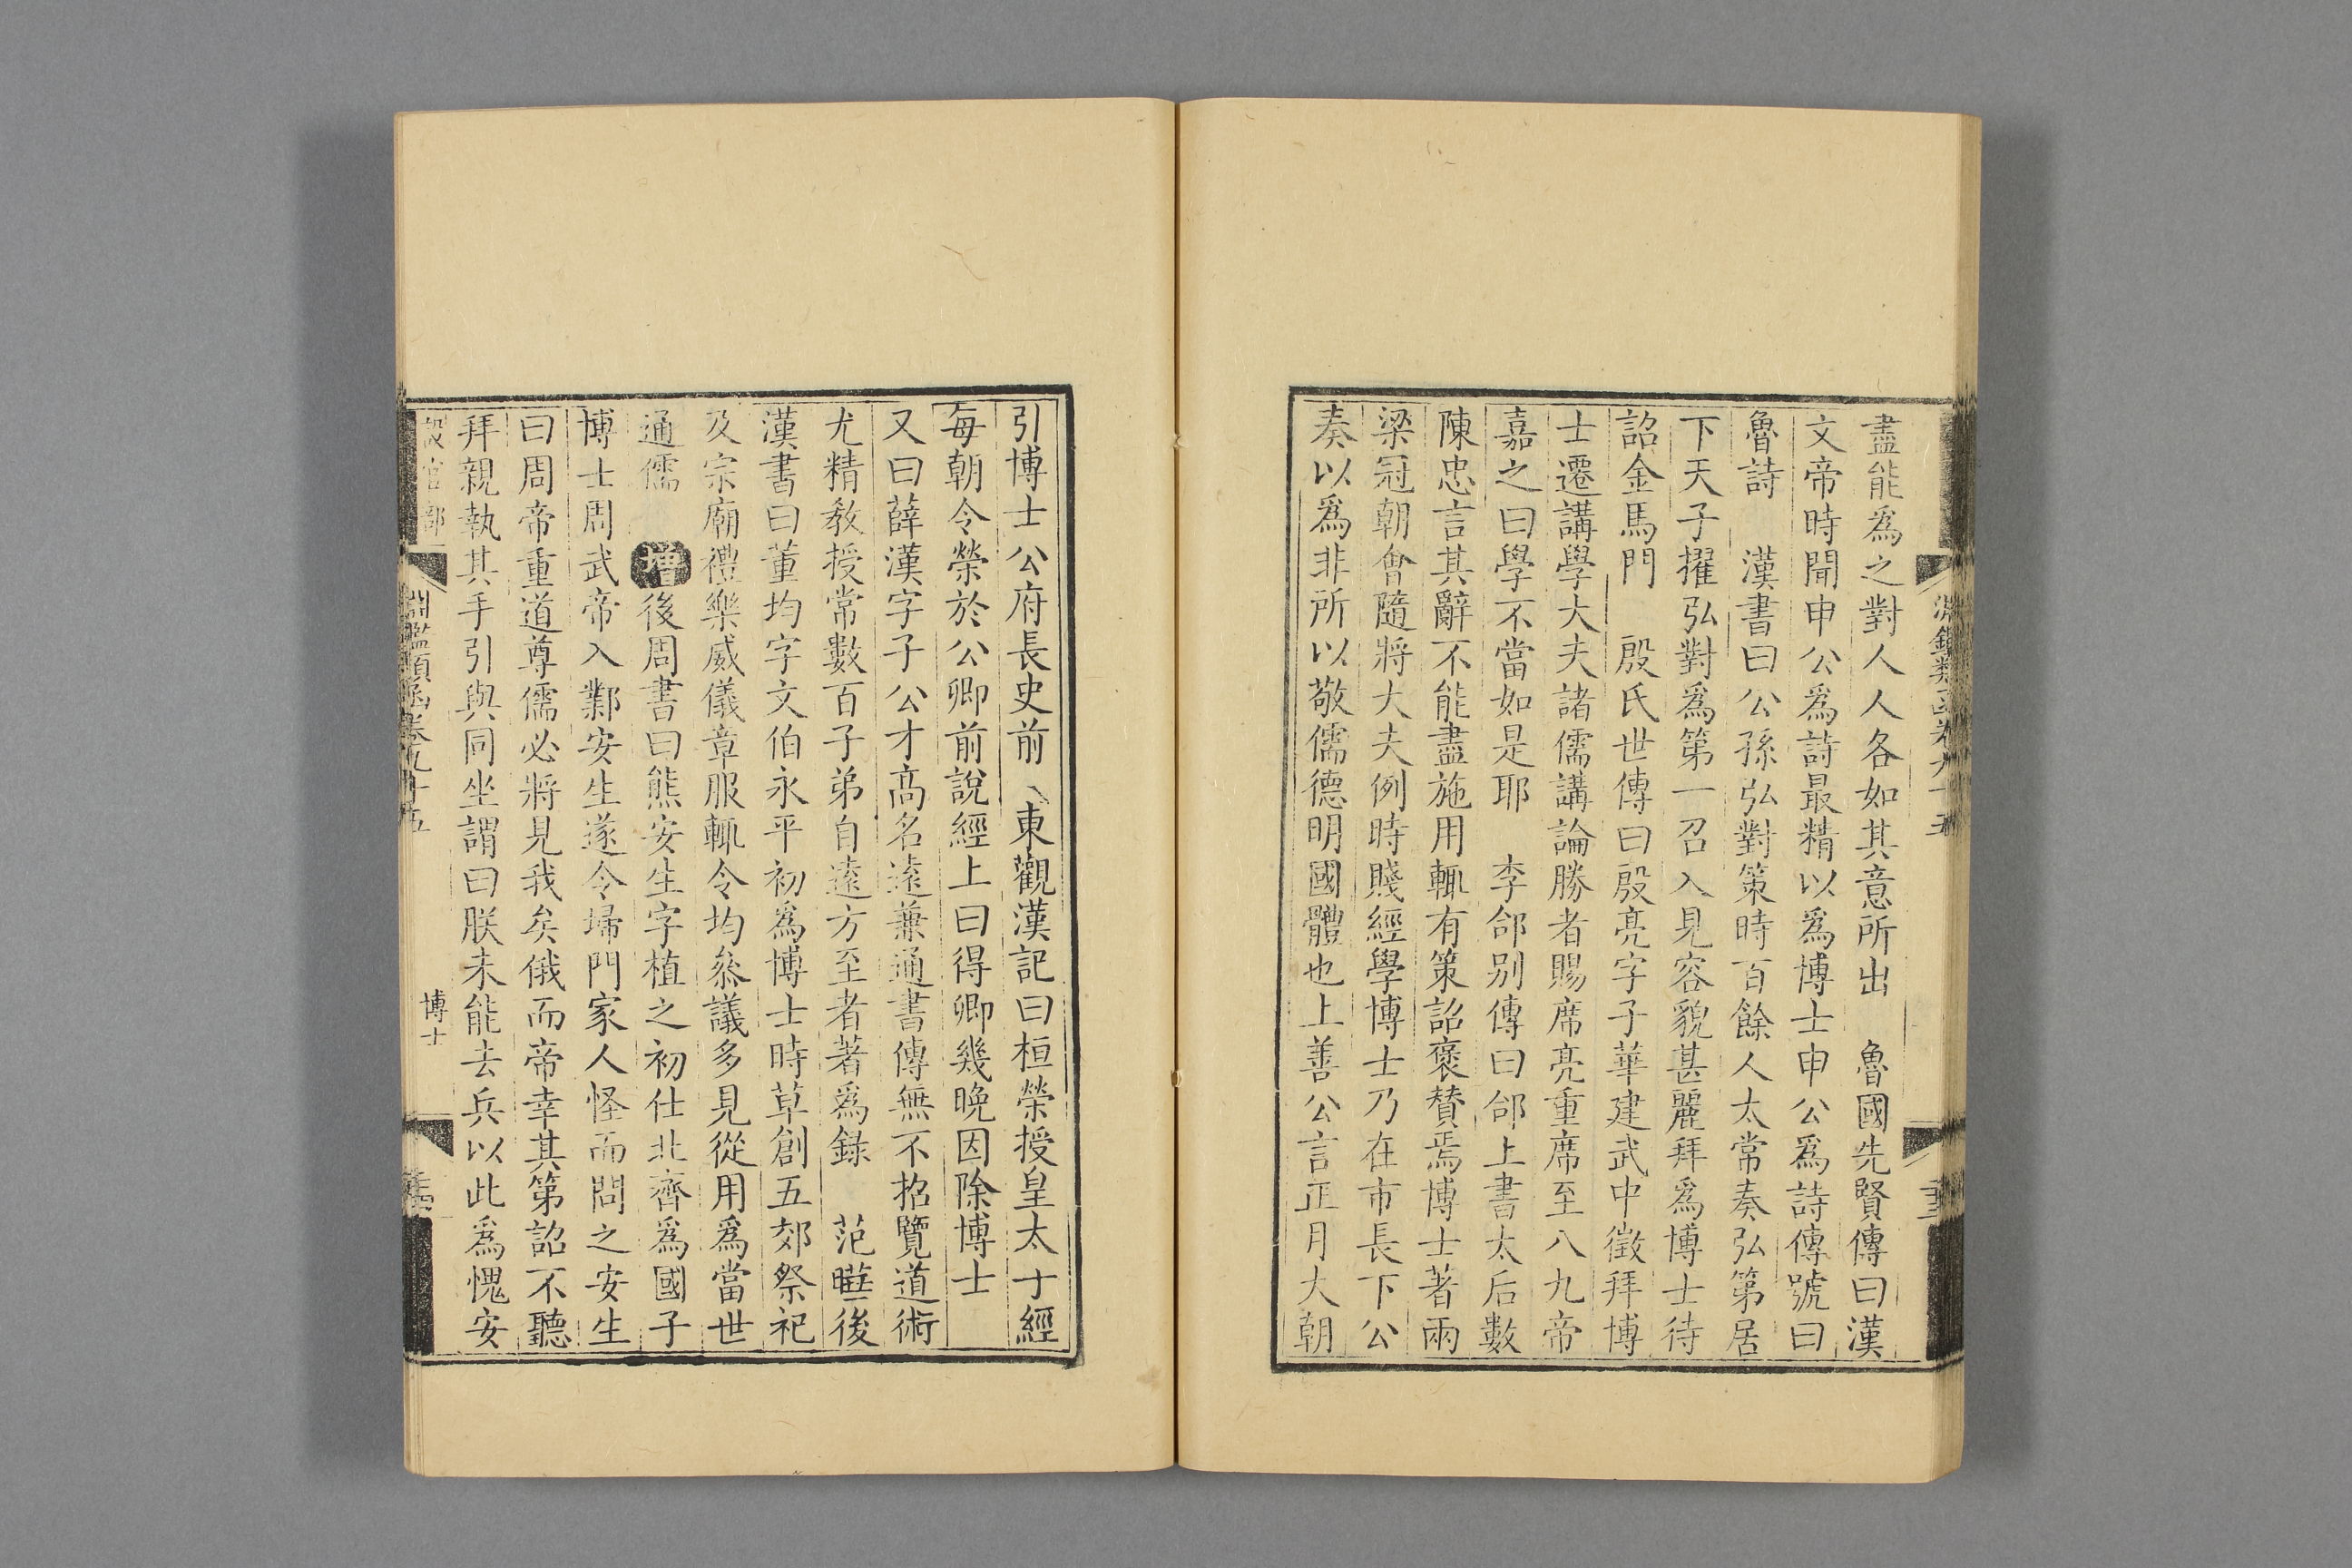 盡能爲之對人人各如其意所出　魯國先賢傳曰漢
文帝時聞申公爲詩最精以爲博士申公爲詩傳號曰
魯詩　漢書曰公孫弘對策時百餘人太常奏弘第居
下天子擢弘對爲第一召入見容貌甚麗拜爲博士待
詔金馬門　殷氏世傳曰殷亮字子華建武中徵拜博
士遷講學大夫諸儒講論勝者賜席亮重席至八九帝
嘉之曰學不當如是耶　李郃别傳曰郃上書太后數
陳忠言其辭不能盡施用輒有策詔褒贊焉博士著兩
梁冠朝會隨將大夫例時賤經學博士乃在市長下公
奏以爲非所以敬儒德明國體也上善公言正月大朝
引博士公府長史前　東觀漢記曰桓榮授皇太子經
每朝令榮於公卿前說經上曰得卿幾晚因除博士
又曰薛漢字子公才高名遠兼通書傳無不招覽道術
尤精教授常數百子弟自遠方至者著爲錄　范曄後
漢書曰董均字文伯永平初爲博士時草創五郊祭祀
及宗廟禮樂威儀章服輒令均叅議多見從用爲當世
通儒　增後周書曰熊安生字植之初仕北齊爲國子
博士周武帝入鄴安生遂令埽門家人怪而問之安生
曰周帝重道尊儒必將見我矣俄而帝幸其第詔不聽
拜親執其手引與同坐謂曰朕未能去兵以此爲愧安
設官部
淵鑑類函卷九十五
博士